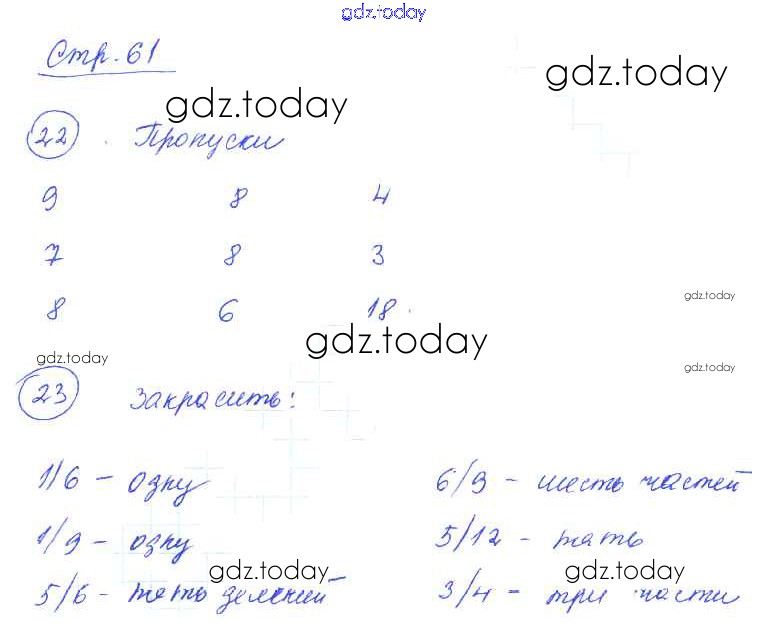 gdz.today
Стр. 61
gdz.today
gdz.today
22. Пропуски
9 8 4
7 8 3
gdz.today
8 6 18.
gdz.today
gdz.today
gdz.today
23 Закрасить:
1/6 - одну 6/9 - шесть частей
1/9 - одну 5/12 - пять
gdz.today gdz.today
5/6 - пять делений 3/4 - три части